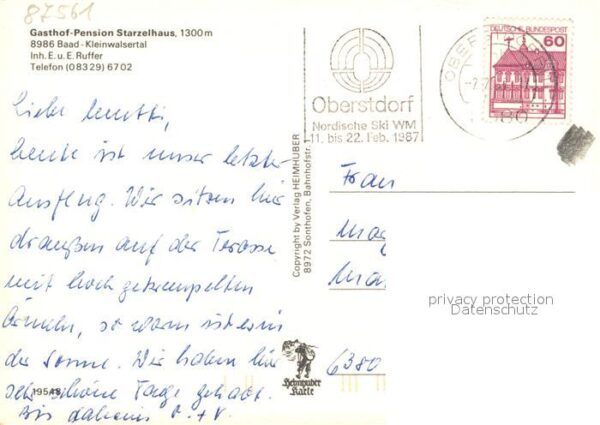 87561
Gasthof-Pension Starzelhaus, 1300 m
8986 Baad - Kleinwalsertal
Inh. E. u. E. Ruffer
Telefon (0 83 29) 67 02
Liebe
heute ist unser letzter
Ausflug. Wir sitzen hier
draußen auf der Terasse
mit hoch gekrempelten
Ärmeln, so warm ist es in
der Sonne. Wir haben hier
sehr schöne Tage gehabt.
Bis daheim P. + V.
19548
Copyright by Verlag HEIMHUBER
8972 Sonthofen, Bahnhofstr.
Heimhuber
Karte
Oberstdorf
Nordische Ski WM
11. bis 22. Feb. 1987
DEUTSCHE BUNDESPOST
60
Frau
6380
privacy protection
Datenschutz